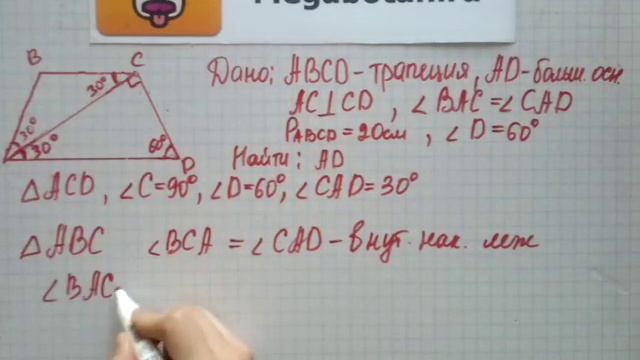 Megabotan.ru
B C
30°
30°
30° 60° D
Дано: ABCD - трапеция, AD - больш. осн.
AC⊥CD, ∠BAC = ∠CAD
P ABCD = 20см, ∠D = 60°
Найти: AD
△ACD, ∠C=90°, ∠D=60°, ∠CAD=30°
△ABC ∠BCA = ∠CAD - внут. нак. леж
∠BAC